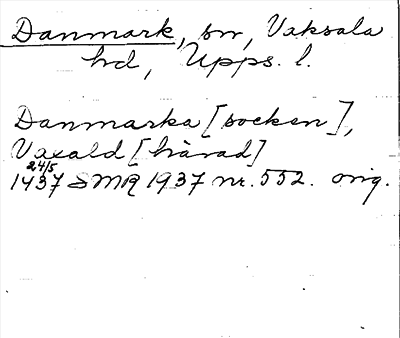 Danmark, sn, Vaksala
hd, Upps. l.
Danmarka [socken],
Vaxald [härad]
24/5
1437 SMR 1937 nr. 552. orig.